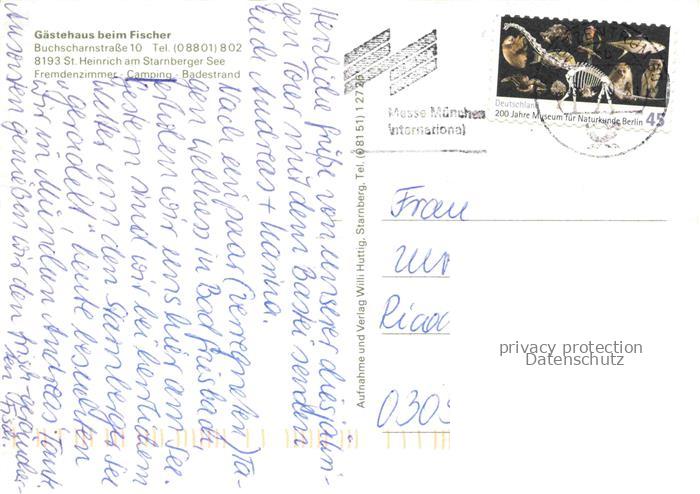 Gästehaus beim Fischer
Buchscharnstraße 10 Tel. (08801) 802
8193 St. Heinrich am Starnberger See
Fremdenzimmer - Camping - Badestrand
Herzliche Grüße von unserer diesjähri-
gen Tour mit dem Bastei senden
Euch Andreas + Karina.
Nach ein paar (verregneten) Ta-
gen Wellness in Bad Griesbach
befinden wir uns hier am See.
Gestern sind wir bei bestem
Wetter um den Starnberger See
"geradelt", heute besuchten
wir in München Andreas' Tante
Ansonsten genießen wir den frisch geräucher-
ten Fisch.
Aufnahme und Verlag Willi Huttig, Starnberg, Tel. (08151) 12726
Messe München
International
Deutschland
200 Jahre Museum für Naturkunde Berlin
45
Frau
Ricar
0303
privacy protection
Datenschutz